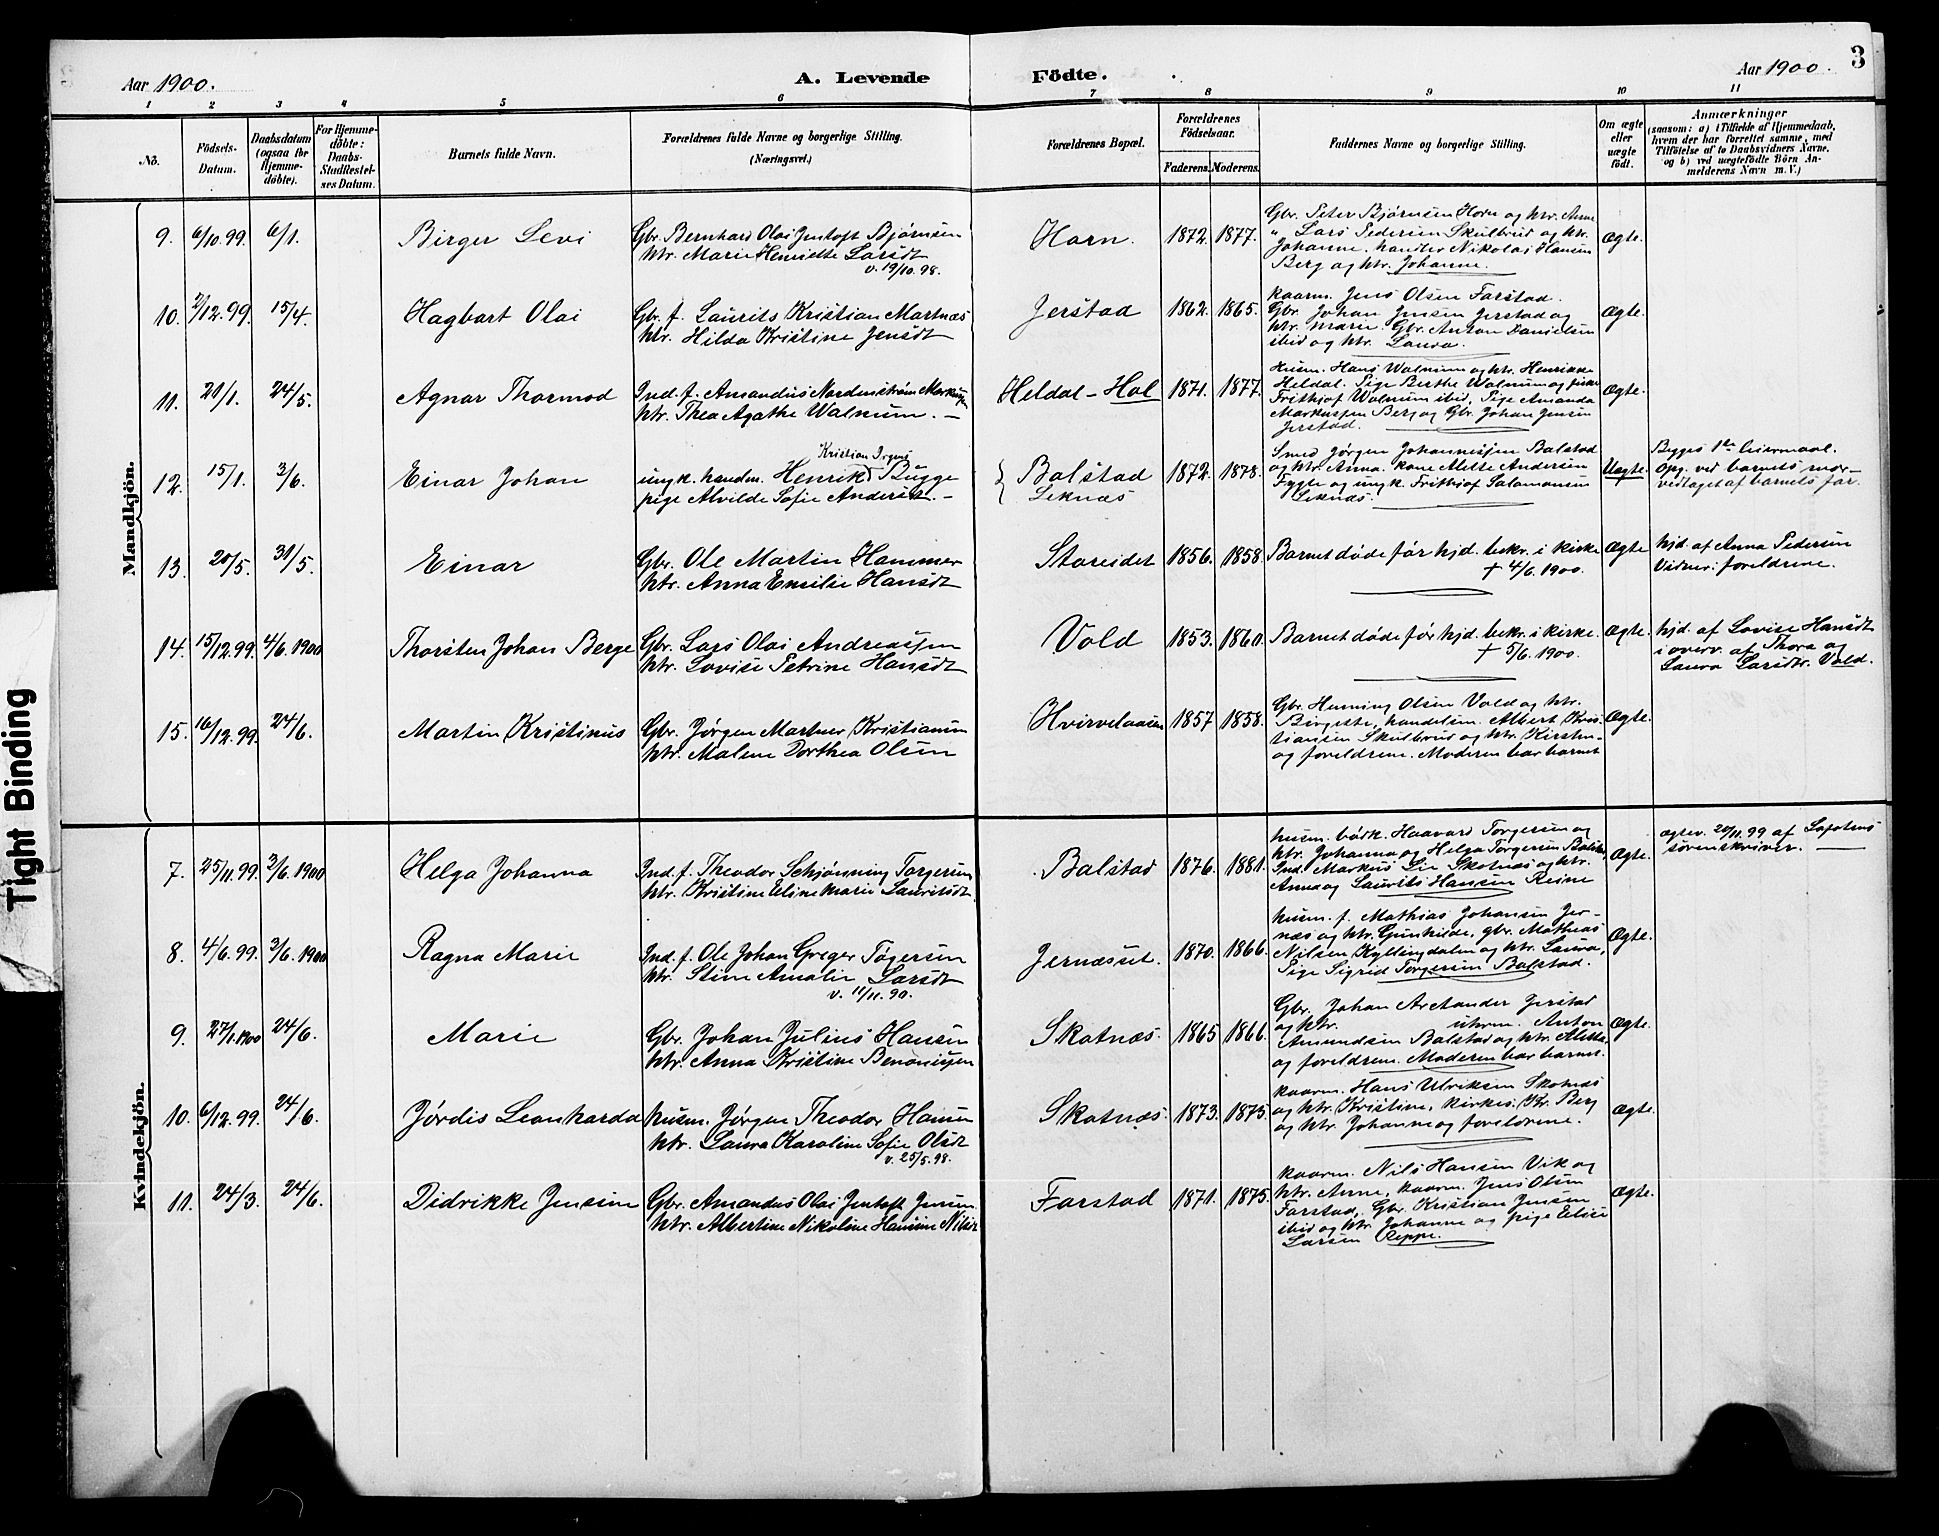 Aar 1900.
A. Levende
Födte.
Aar 1900.
3
1 2 3 4 5 6 7 8 9 10 11
No.
Födsels-
Datum.
Daabsdatum
(ogsaa for
Hjemme-
döbte).
For Hjemme-
döbte:
Daabs-
Stadfestel-
ses Datum.
Barnets fulde Navn.
Forældrenes fulde Navne og borgerlige Stilling.
(Næringsvei.)
Forældrenes Bopæl.
Forældrenes
Födselsaar.
Faderens. Moderens.
Faddernes Navne og borgerlige Stilling.
Om ægte
eller
uægte
födt.
Anmærkninger
(saasom: a) i Tilfælde af Hjemmedaab,
hvem der har forrettet samme, med
Tilföielse af to Daabsvidners Navne,
og b) ved uægtefödte Börn An-
melderens Navn m. V.)
Mandkjön.
9. 6/10.99. 6/1.
Birger Levi
Gbr. Bernhard Olai Jentoft Bjørnsen
htr. Marie Henriette Larsdt
v. 19/10.98.
Horn.
1872. 1877.
Gbr. Peter Bjørnsen Horn og htr. Anne
" Lars Pedersen Skulbrud og htr.
Johanne, handler Nikolai Hansen
Berg og htr. Johanne.
Ægte.
10. 2/12.99. 15/4.
Hagbart Olai
Gbr. f. Laurits Kristian Martnæs
htr. Hilda Kristine Jensdt
Jerstad
1862. 1865.
kaarm. Jens Olsen Farstad.
Gbr. Johan Jensen Jerstad og
htr. Marie. Gbr. Anton Danielsen
ibid og htr. Laura.
Ægte.
11. 20/1. 24/5.
Agnar Thormod
Ind. f. Amandus Nordenstrøm Markussen
htr. Thea Agathe Walnum. -
Heldal - Hol
1871. 1877.
Husm. Hans Walnum og htr. Henrikke
Heldal. Pige Berthe Walnum og fisker
Frithjof Walnum ibid, Pige Amanda
Markussen Berg og Gbr. Johan Jensen
Jerstad.
Ægte.
12. 15/1. 3/6.
Einar Johan
Kristian Irgens
ungk. handm. Henrik Bugge
pige Alvilde Sofie Andersdt. -
Balstad
Leknæs
1872. 1878.
Smed Jørgen Johannessen Balstad
og htr. Anna. kone Alette Andersen
Fygle og ungk. Frithjof Salamonsen
Leknæs.
Uægte.
Begges 1ste leiermaal.
Opg. ved barnets mor -
vedtaget af barnets far.
13. 20/5. 31/5.
Einar
Gbr. Ole Martin Hammer
htr. Anna Emilie Hansdt
Storeidet
1856. 1858.
Barnet døde før hjd. bekr. i kirke
† 4/6.1900.
Ægte
hjd. af Anna Pedersen
Vidner: foreldrene.
14. 15/12.99. 4/6.1900
Thorsten Johan Berge
Gbr. Lars Olai Andreassen
htr. Lovise Petrine Hansdt
Vold
1853. 1860.
Barnet døde før hjd. bekr. i kirke.
† 5/6.1900.
Ægte.
hjd. af Lovise Hansdt
i overv. af Thora og
Laura Larsdtr. Vold.
15. 16/12.99. 24/6.
Martin Kristinus
Gbr. Jørgen Martner Kristiansen
htr. Malene Dorthea Olsen
Hvirvelaasen
1857 1858.
Gbr. Henning Olsen Vold og htr.
Birgitte, handelsm. Albert Kris
tiansen Skulbrud og htr. Kirsten
og foreldrene. Moderen bar barnet
Ægte.
Kvindekjön.
7. 25/11.99. 3/6.1900
Helga Johanna
Ind. f. Theodor Schjønning Torgersen
htr. Kristine Eline Marie Lauritsdt.
Balstad
1876. 1881.
husm. bødk. Haavard Torgersen og
htr. Johanna og Helga Torgersen Balstad,
Ind. Markus Lie Skotnæs og htr.
Anna og Laurits Hansen Reine
Ægte.
ægtev. 20/11.99 af Lofotens
sorenskriver.
8. 4/6.99. 3/6.1900
Ragna Marie
Ind. f. Ole Johan Greger Tøgersen
htr. Stine Amalie Larsdt
v. 11/11.90.
Jernæsset.
1870. 1866.
husm. f. Mathias Johansen Jer-
næs og htr. Gunhilde, gbr. Mathias
Nilsen Kyllingdalen og htr. Laura,
Pige Sigrid Torgersen Balstad.
Ægte.
9. 27/1.1900 24/6.
Marie
Gbr. Johan Julius Hansen
htr. Anna Kristine Benonisen
Skotnæs.
1865 1866.
Gbr. Johan Arctander Jerstad
og htr. uhrm. Anton
Amundsen Balstad og htr. Aletta
og foreldrene. Moderen bar barnet.
Ægte.
10. 6/12.99. 24/6.
Jørdis Leonharda
husm. Jørgen Theodor Hansen
htr. Laura Karoline Sofie Olsdt
v. 25/5.98.
Skotnæs.
1873. 1875.
kaarm. Hans Ulriksen Skotnæs
og htr. Kristine, kirkes. Kr. Berg
og htr. Johanne og foreldrene.
Ægte.
11. 24/3. 24/6.
Didrikke Jensine
Gbr. Amandus Olai Jentoft Jensen
htr. Albertine Nikoline Hansine Nilsdt
Farstad
1871. 1875.
kaarm. Nils Hansen Vik og
htr. Anne, kaarm. Jens Olsen
Farstad, Gbr. Kristian Jensen
ibid og htr. Johanne og pige Elise
Larsen Reppe.
Ægte.
Tight Binding